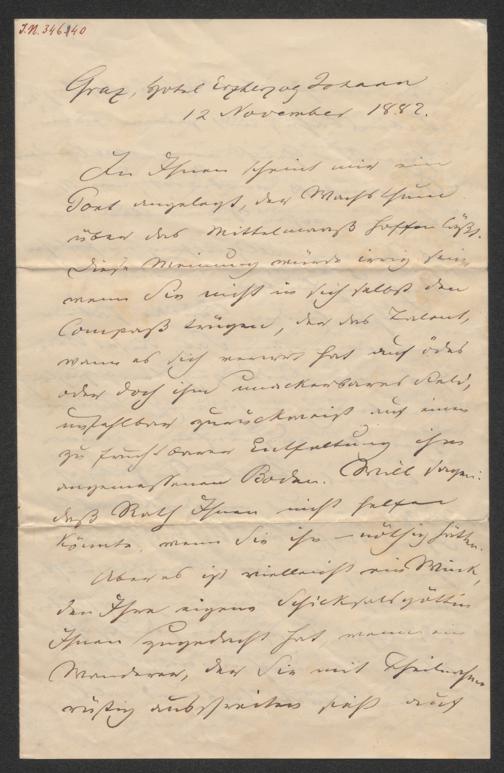 I.N. 346840
Graz, Hotel Erzherzog Johann
12 November 1882.
In Ihnen scheint mir ein
Poet angelegt, der Wachsthum
über das Mittelmaaß hoffen läßt.
Diese Meinung würde irrig sein,
wenn Sie nicht in sich selbst den
Compaß trügen, der das Talent,
wann es sich verirrt hat auf ödes
oder doch ihm unackerbares Feld,
unfehlbar zurückweist auf einen
zu fruchtbarer Entfaltung ihm
angemessenen Boden. Will sagen:
daß Rath Ihnen nicht helfen
könnte, wenn Sie ihn nöthig hätten.
Aber es ist vielleicht ein Wink,
den Ihre eigene Schicksalsgöttin
Ihnen zugedacht hat, wenn ein
Wanderer, der Sie mit Theilnahme
rüstig ausschreiten sieht auf